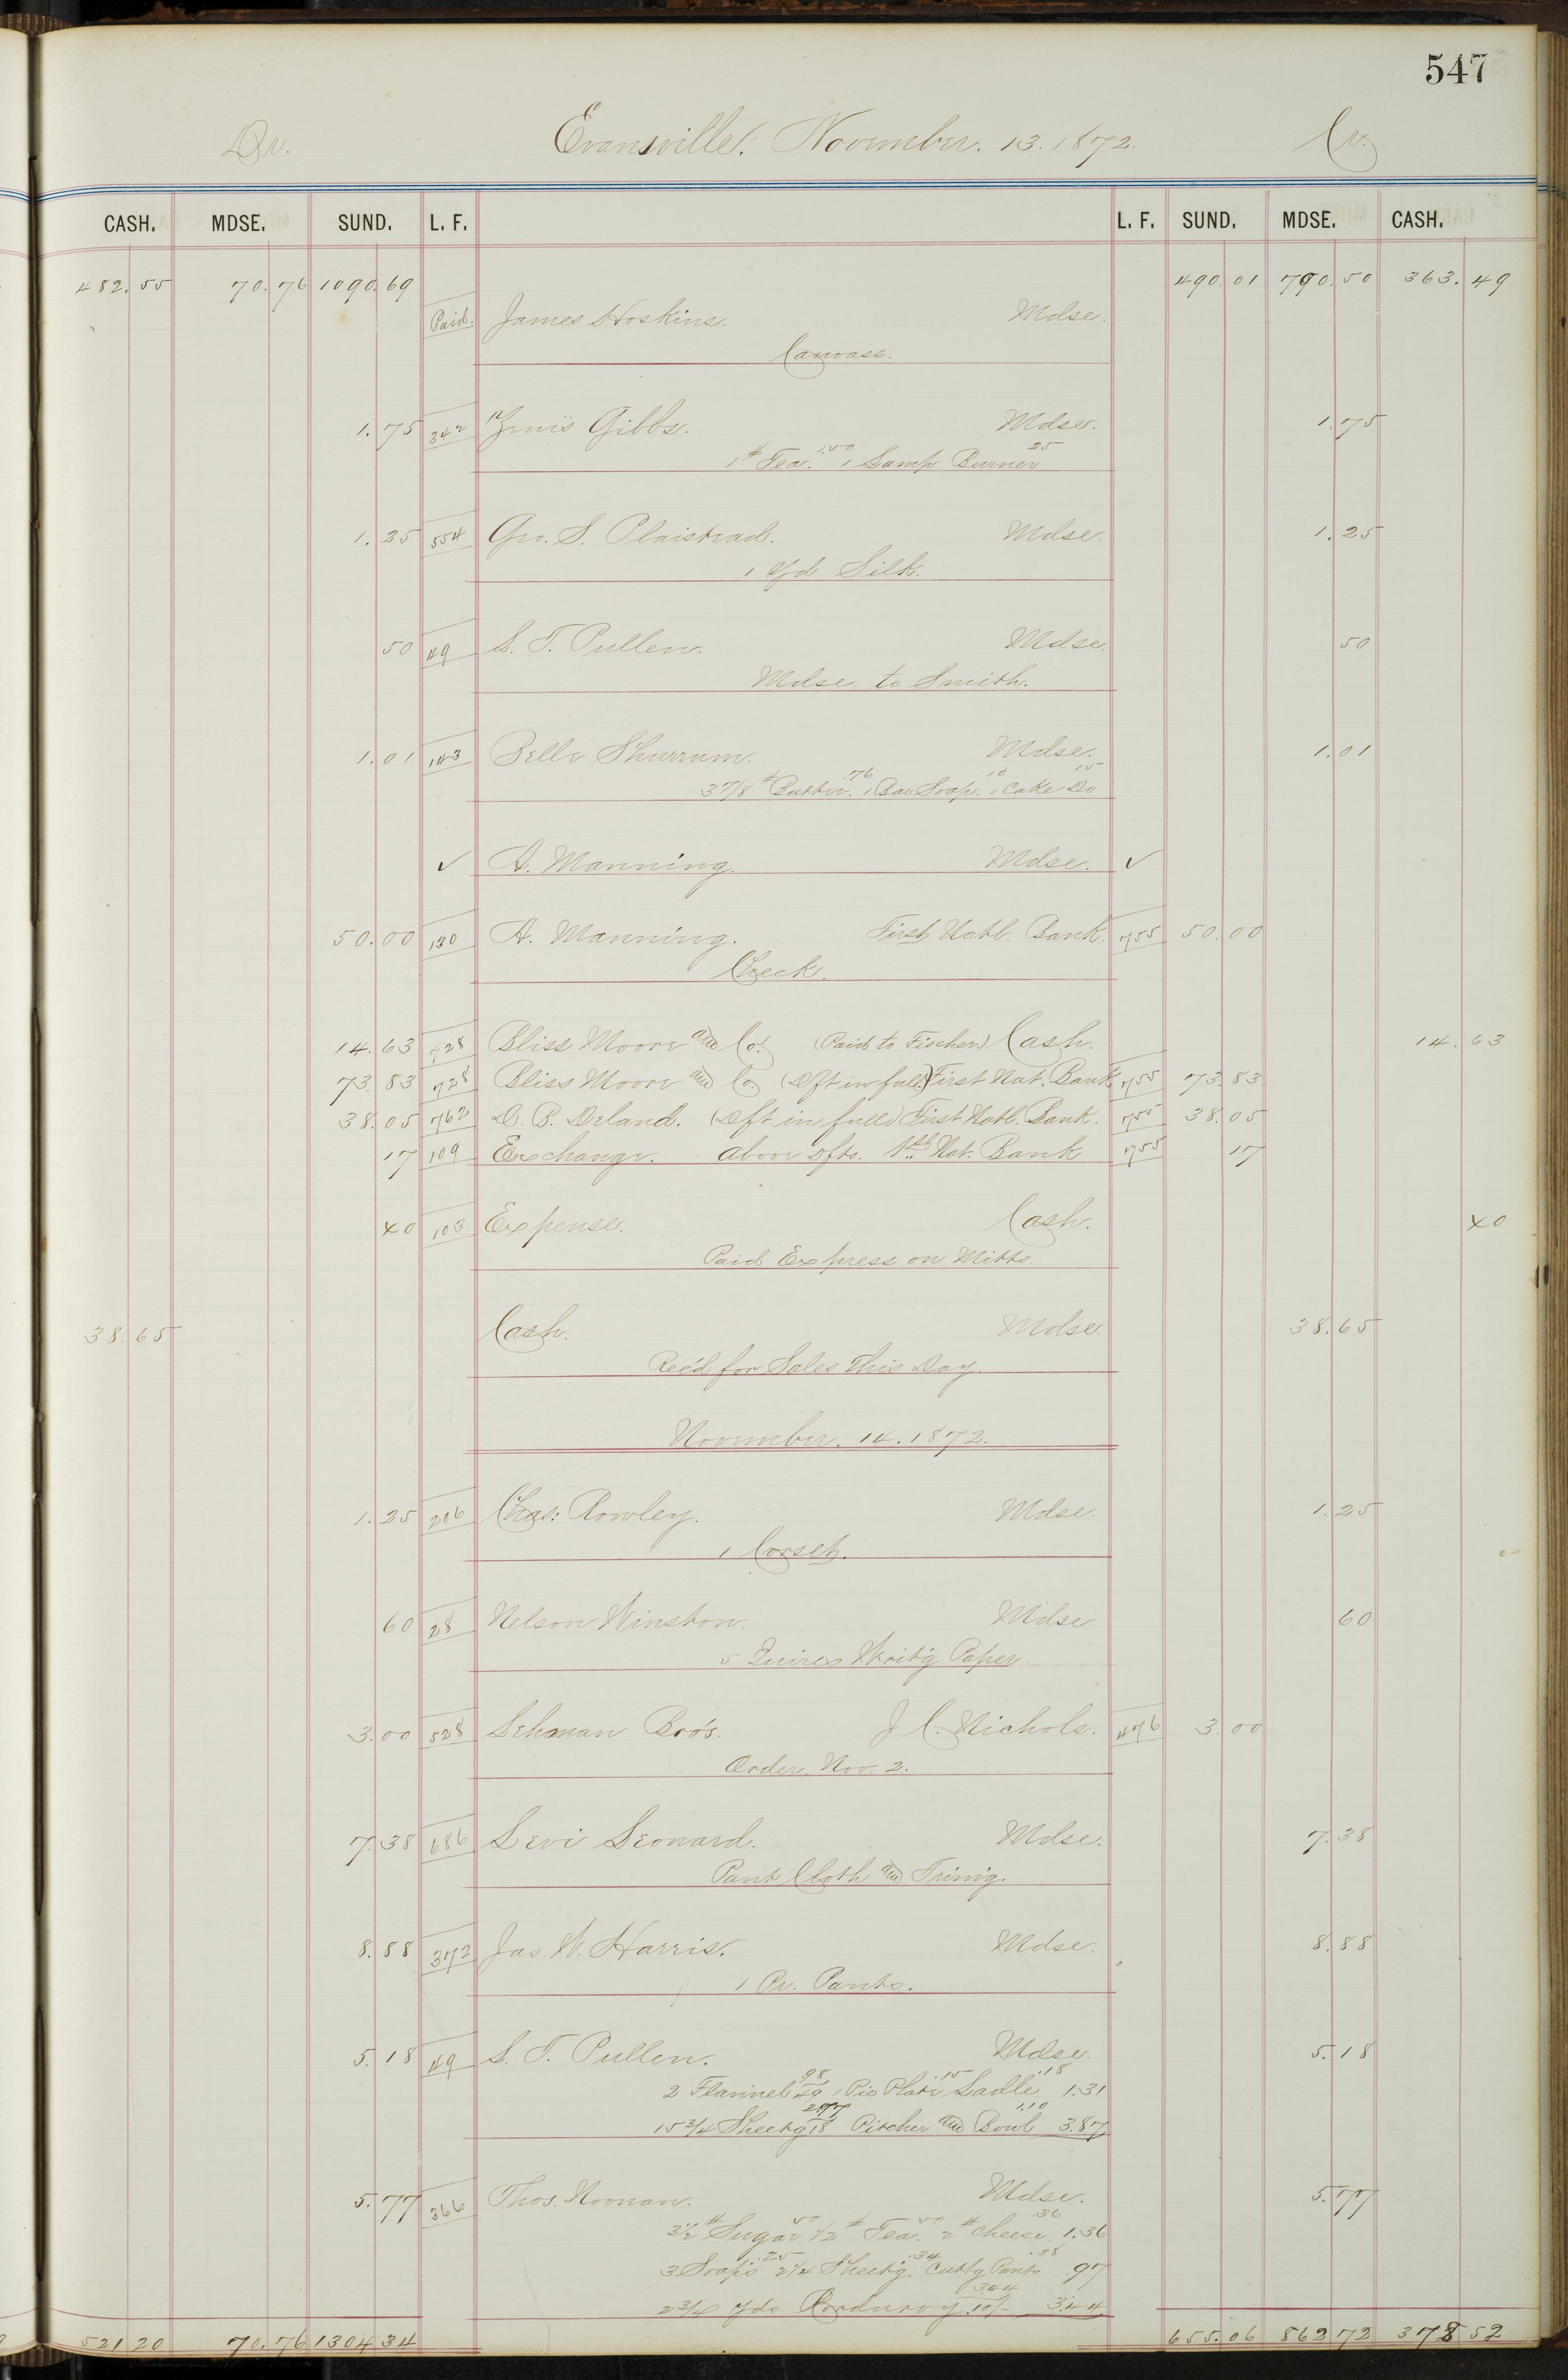 547
Dr. Evansville, November. 13. 1872. Cr.
CASH. MDSE. SUND. L. F. L. F. SUND. MDSE. CASH.
482.55 70.76 1090.69 490.01 790.50 363.49
Paid. James Hoskins. Mdse.
Canvass.
1.75 342 Gibbs. Mdse. 1.75
1# Tea. 1.50 1 Lamp Burner 25
1.25 554 Geo. S. Plaistead. Mdse. 1.25
1 yd Silk.
50 49 S. T. Pullen. Mdse. 50
Mdse. to Smith.
1.01 143 Belle Shurrum. Mdse. 1.01
3 7/8 # Butter. .76 1 Bar Soap. 10 1 Cake Do 15
✓ A. Manning. Mdse. ✓
50.00 130 A. Manning. First Natl. Bank. 755 50.00
Check.
14.63 728 Bliss Moore and Co. (Paid to Fischer) Cash. 14.63
73.83 728 Bliss Moore and Co. (Dft in full) First Nat. Bank 755 73.83
38.05 762 D. B. Deland. (Dft in full) First Natl. Bank. 755 38.05
17 109 Exchange. above Dfts. 1st Nat. Bank 755 17
40 103 Expense. Cash. 40
Paid Express on Mitts.
38.65 Cash. Mdse. 38.65
Rec'd for Sales This Day.
November. 14. 1872.
1.25 206 Chas: Rowley. Mdse 1.25
1 Corset.
60 28 Nelson Winston. Mdse 60
5 Quires Writ'g Paper.
3.00 528 Lehman Bro's. J. C. Nichols. 476 3.00
Order. Nov. 2.
7.38 686 Levi Leonard. Mdse. 7.38
Pant Cloth and Trim'g.
8.88 372 Jas. W. Harris. Mdse. 8.88
1 Pr. Pants.
5.18 49 S. T. Pullen. Mdse. 5.18
2 Flannel 49 .98 1 Pie Plate .15 Ladle .18 1.31
15 3/4 Sheet'g 18 2.77 Pitcher and Bowl 1.10 3.87
5.77 366 Thos. Noonan. Mdse. 5.77
3 1/2 # Sugar 50 1/2 # Tea. 50 2 # Cheese. .36 1.36
3 Soaps .25 2 1/4 Sheet'g. .34 Cutt'g Pants .38 97
2 3/4 yds Corduroy 10/- 3.44 3.44
521 20 70.76 1304 34 655.06 862 72 378 52